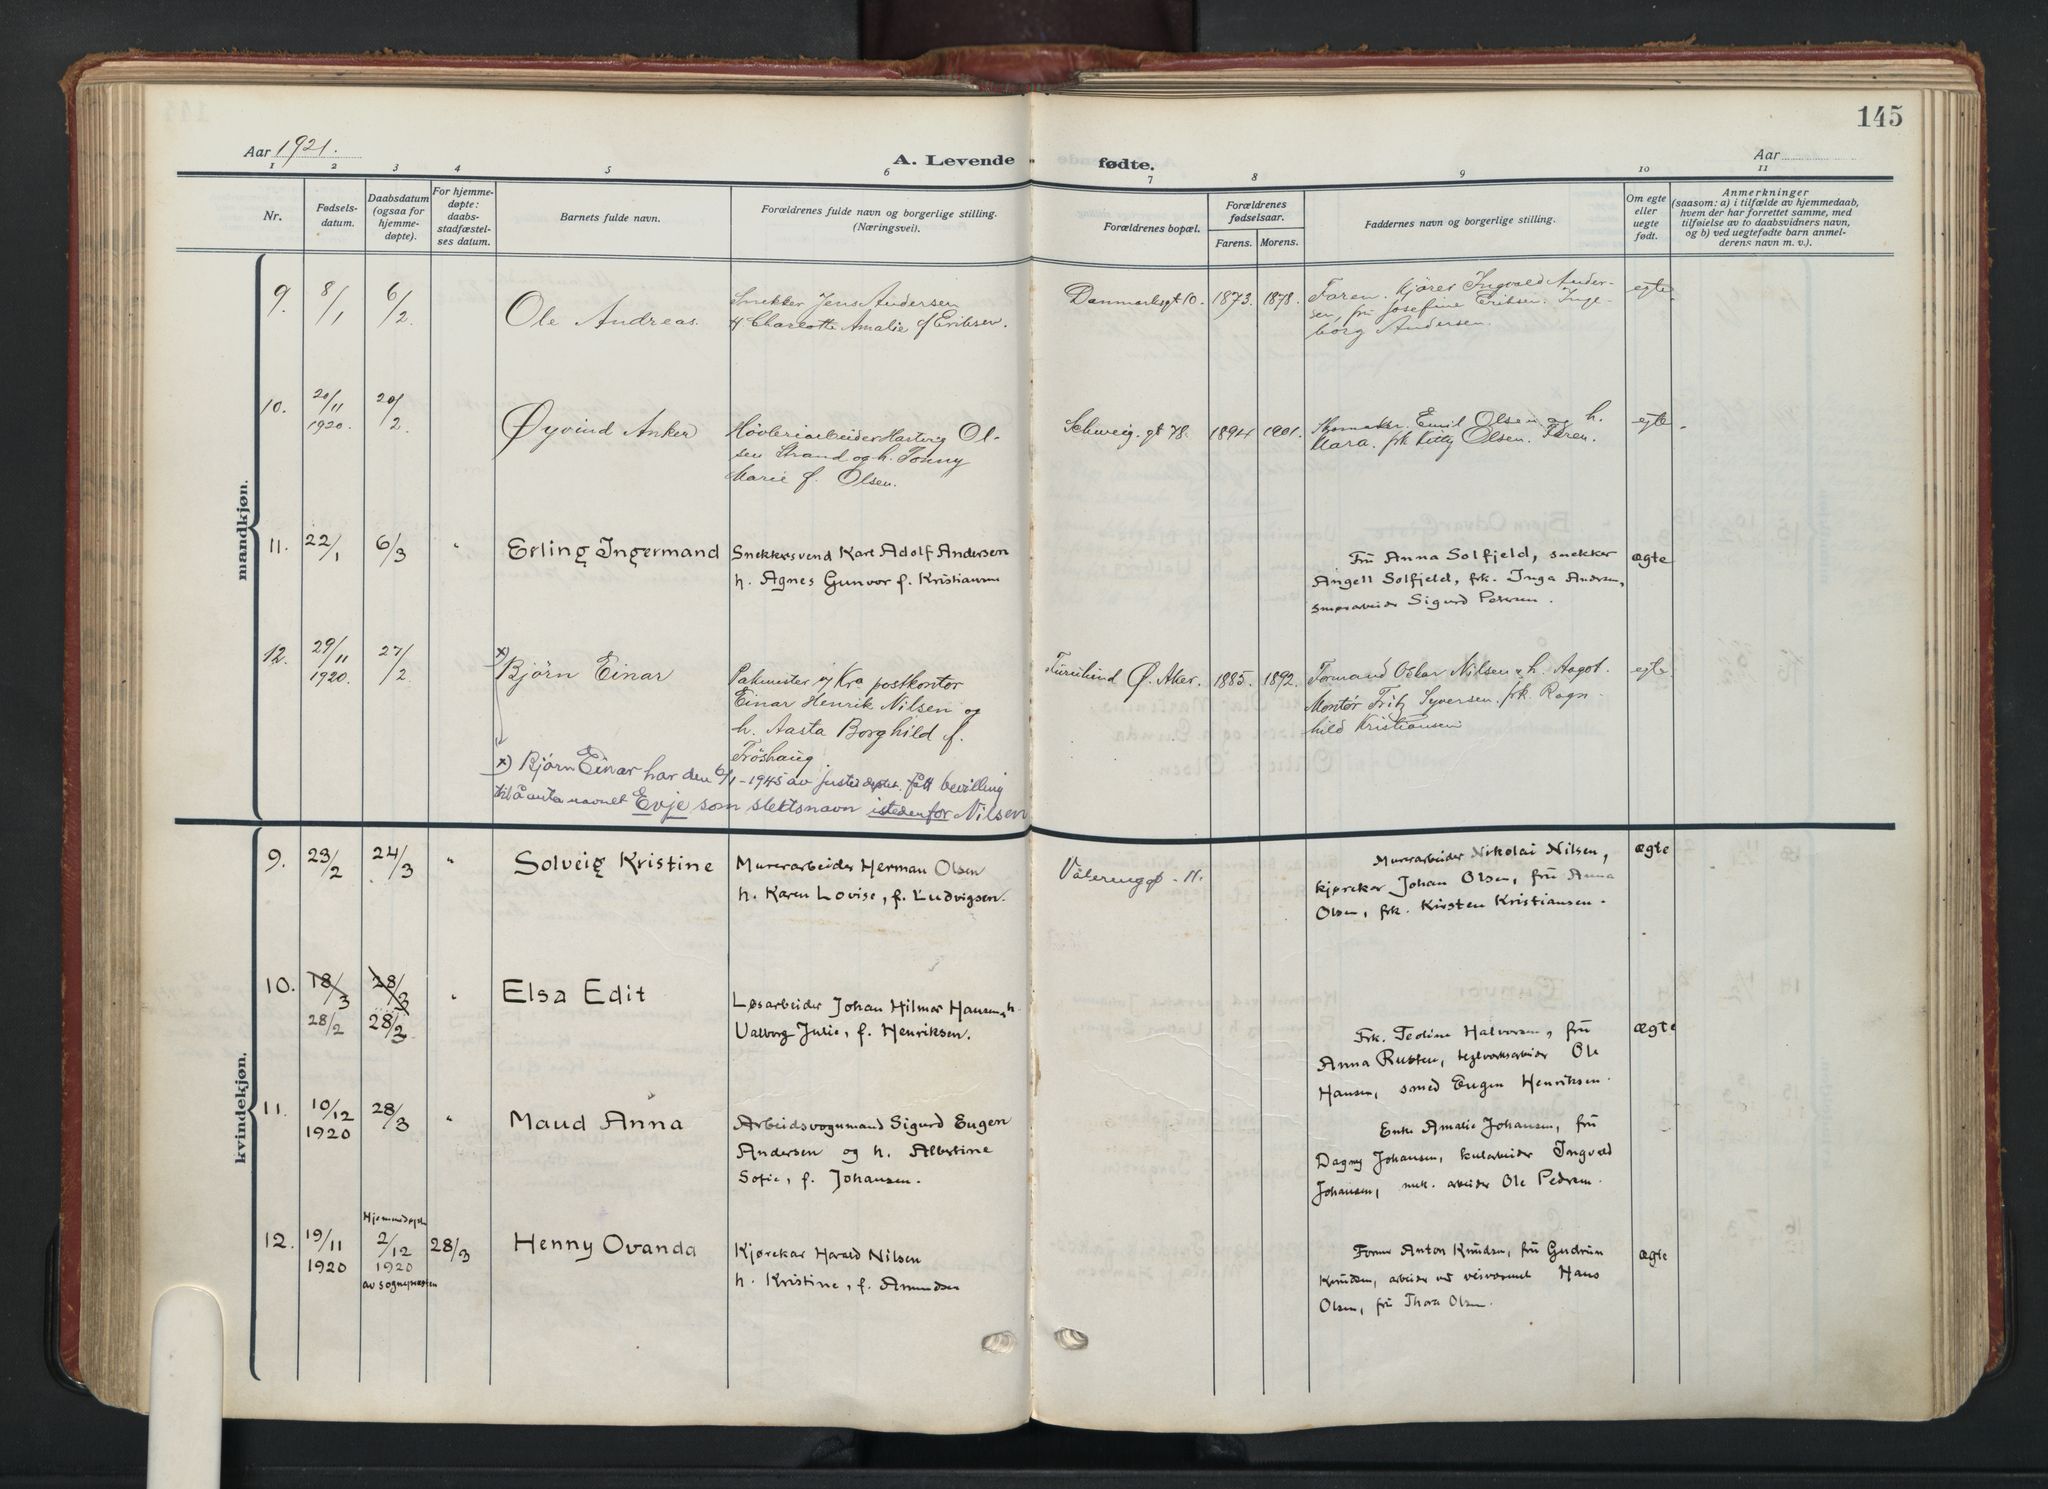 145
Aar 1921.
A. Levende fødte.
Aar
1 2 3 4 5 6 7 8 9 10 11
Nr.
Fødsels-
datum.
Daabsdatum
(ogsaa for
hjemme-
døpte).
For hjemme-
døpte:
daabs-
stadfæstel-
ses datum.
Barnets fulde navn.
Forældrenes fulde navn og borgerlige stilling.
(Næringsvei).
Forældrenes bopæl.
Forældrenes
fødselsaar.
Farens. Morens.
Faddernes navn og borgerlige stilling.
Om egte
eller
uegte
født.
Anmerkninger
(saasom: a) i tilfælde av hjemmedaab,
hvem der har forrettet samme, med
tilføielse av to daabsvidners navn,
og b) ved uegtefødte barn anmel-
derens navn m. v.).
mandkjøn.
9. 8/1 6/2 Ole Andreas.
Snekker Jens Andersen
Charlotte Amalie f Eriksen.
Danmarksgt 10. 1873. 1878.
Faren. kjører Ingvald Ander-
sen, fru Josefine Eriksen. Inge-
borg Andersen.
egte
10. 20/11 1920. 20/2. Øyvind Anker
Høvleriarbeider Hartvig Ol-
sen Strand og h. Tonny
Marie f. Olsen.
Schweig. gt 78. 1894 1901.
Skomaker Emil Olsen og h.
Klara. frk Kitty Olsen. Faren.
egte.
11. 22/1 6/3 " Erling Ingermand
Snekkersvend Karl Adolf Andersen
h. Agnes Gunvor f. Kristiansen
Fru Anna Solfjeld, snekker
Angell Solfjeld, frk. Inga Andersen,
Sigurd Pedersen.
ægte
12. 29/11 1920. 27/2. x) Bjørn Einar
Pakmester v/ Kra postkontor
Einar Henrik Nilsen og
h. Aasta Borghild f.
Frøshaug.
Ø. Aker. 1885. 1892.
Formand Oskar Nilsen h. Aagot.
Montør Fritz Syversen. frk. Ragn-
hild Kristiansen
egte.
x) Bjørn Einar har den 6/1-1945 av justisdeptet. fått bevilling
til å anta navnet Evje som slektsnavn istedenfor Nilsen
kvindekjøn.
9. 23/2 24/3 " Solveig Kristine
Murerarbeider Herman Olsen
h. Karen Lovise, f. Ludvigsen.
Vålerenggt. 11.
Murerarbeider Nikolai Nilsen,
kjørekar Johan Olsen, fru Anna
Olsen, frk. Kirsten Kristiansen.
ægte
10. 18/3 28/3 " Elsa Edit
28/2 28/3
Løsarbeider Johan Hilmar Hansen, h.
Valborg Julie, f. Henriksen.
Frk. Teoline Halvorsen, fru
Anna Rusten, teglverksarbeider Ole
Hansen, smed Eugen Henriksen.
ægte
11. 10/12 1920 28/3 " Maud Anna
Arbeidsvognmand Sigurd Eugen
Andersen og h. Albertine
Sofie, f. Johansen.
Enke Amalie Johansen, fru
Dagny Johansen, kularbeider Ingvald
Johansen, mek. arbeider Ole Pedersen.
12. 19/11 1920 Hjemmedøpt
2/12
1920
av sognepresten
28/3 Henny Ovanda
Kjørekar Harald Nilsen
h. Kristine, f. Amundsen
Former Anton Knudsen, fru Gudrun
Knudsen, arbeider ved veivæsenet Hans
Olsen, fru Thora Olsen.
ægte